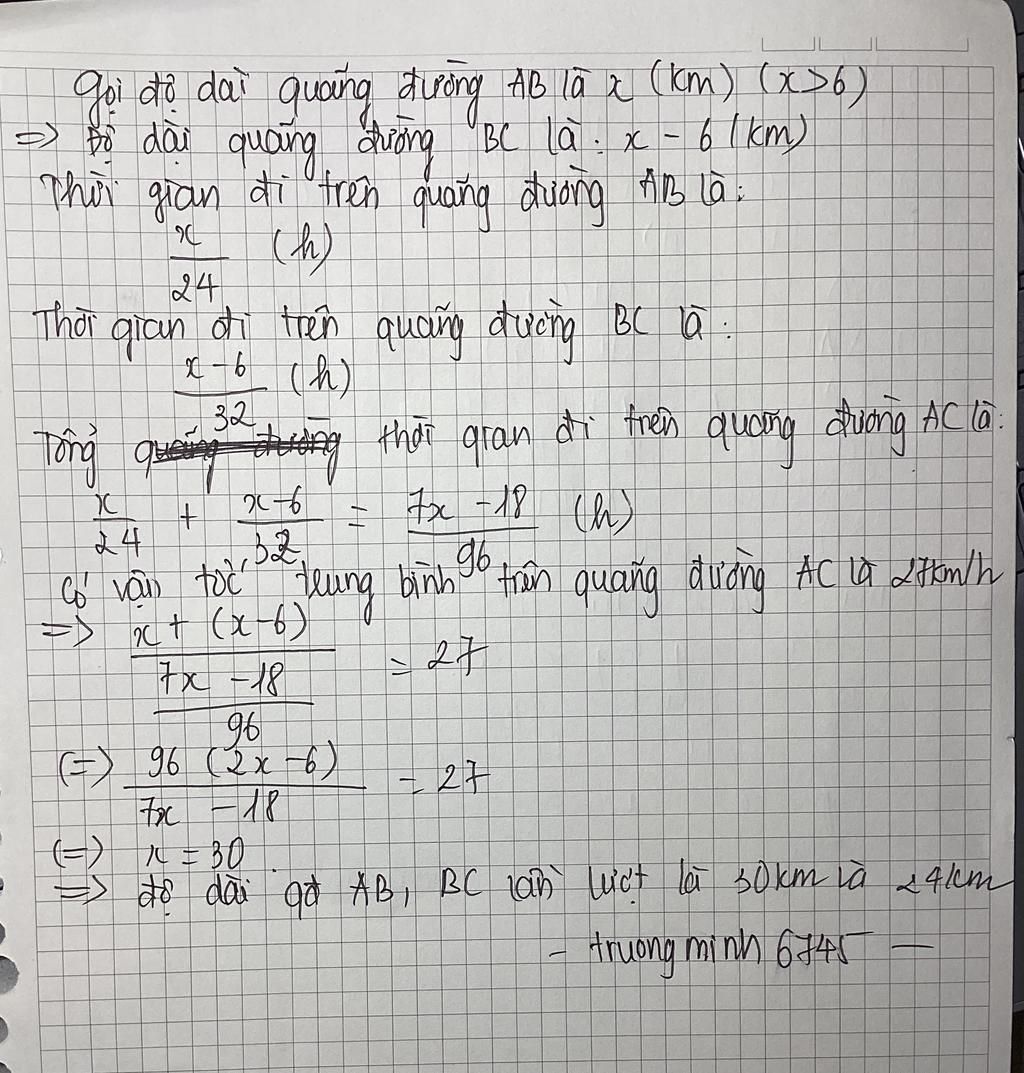 Gọi độ dài quãng đường AB là x (km) (x>6)
=> Độ dài quãng đường BC là : x - 6 (km)
Thời gian đi trên quãng đường AB là :
x/24 (h)
Thời gian đi trên quãng đường BC là :
x - 6/32 (h)
Tổng thời gian đi trên quãng đường AC là :
x/24 + x-6/32 = 7x - 18/96 (h)
Có vận tốc trung bình trên quãng đường AC là 27km/h
=> x + (x-6)/(7x - 18/96) = 27
(=) 96 (2x - 6)/7x - 18 = 27
(=) x = 30
=> độ dài qđ AB, BC lần lượt là 30km là 24km
- truong minh 6745 -